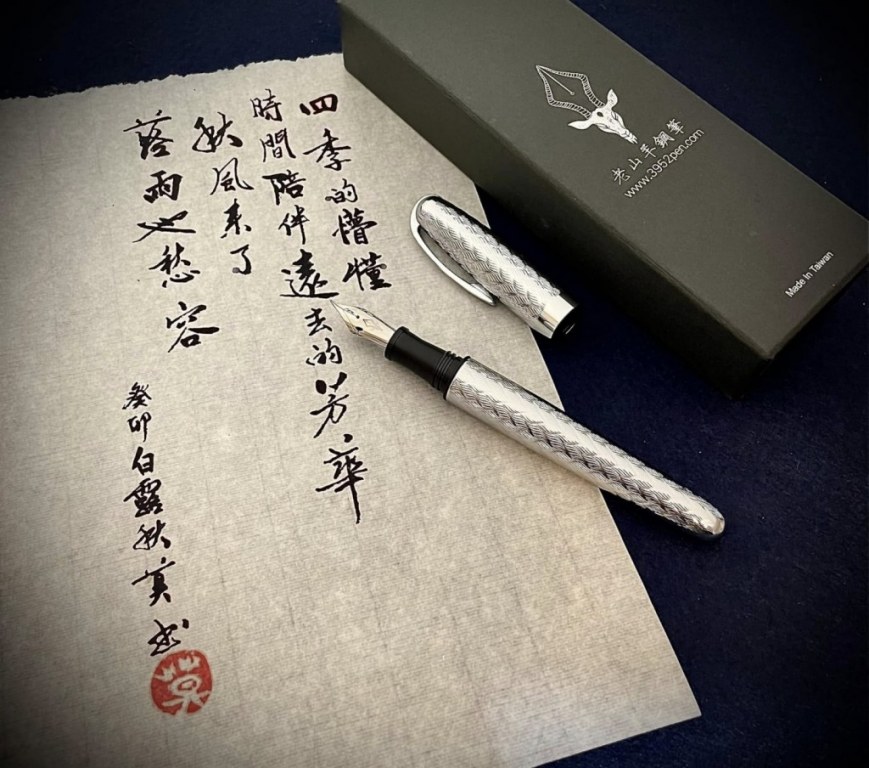 四季的懵懂
時間陪伴遠去的芳華
秋風来了
落雨也愁容
癸卯白露秋书
老山羊鋼筆
www.3952pen.com
Made In Taiwan